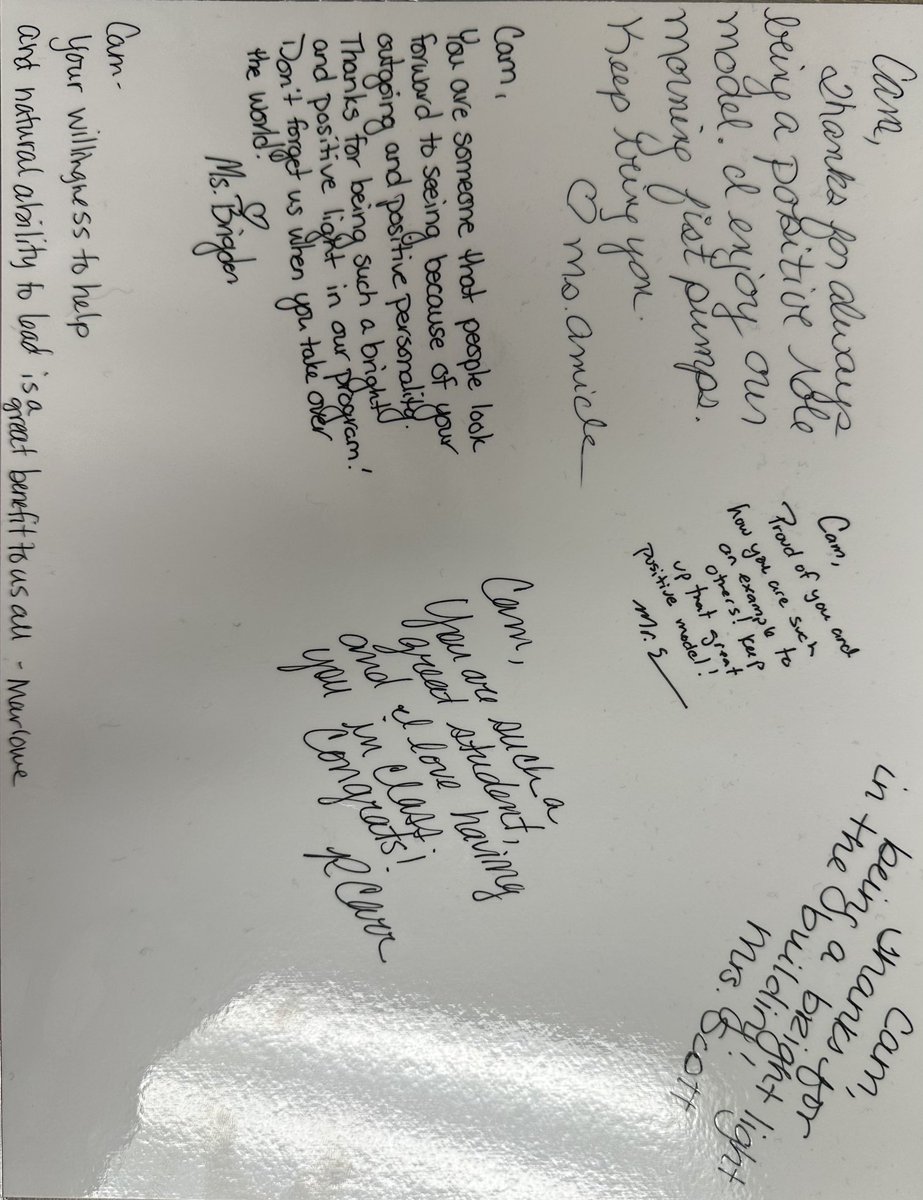 Cam,
Thanks for always
being a positive role
model. I enjoy our
morning fist pumps.
Keep being you.
♡ Ms. Amick
Cam,
Proud of you and
how you are such
an example to
others! Keep
up that great
positive model!
Mr. S
Cam,
Thanks for
being a bright light
in the building!
Mrs. Scott
Cam,
You are someone that people look
forward to seeing because of your
outgoing and positive personality.
Thanks for being such a bright
and positive light in our program!
Don't forget us when you take over
the world!
♡
Ms. Brigdon
Cam,
You are such a
great student,
and I love having
you in class.
Congrats!
R Carr
Cam-
Your willingness to help
and natural ability to lead is a
great benefit to us all - Marlowe